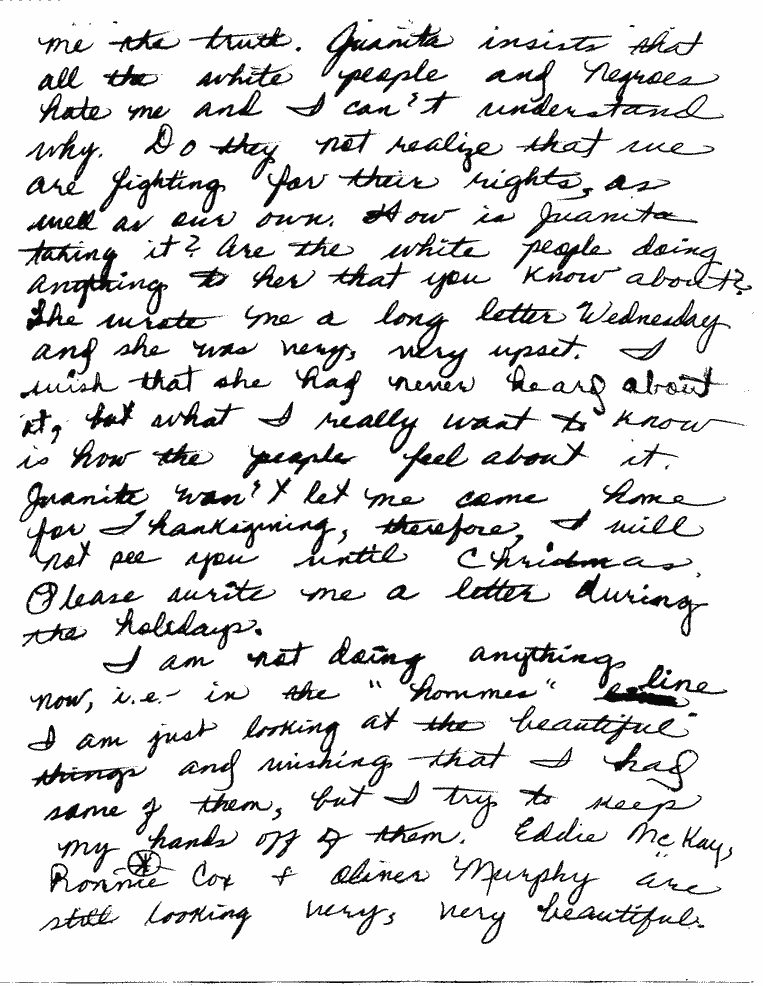 me the truth. Juanita insists that
all the white people and Negroes
hate me and I can't understand
why. Do they not realize that we
are fighting for their rights, as
well as our own. How is Juanita
taking it? Are the white people doing
anything to her that you know about?
She wrote me a long letter Wednesday
and she was very, very upset. I
wish that she had never heard about
it, but what I really want to know
is how the people feel about it.
Juanita won't let me come home
for Thanksgiving, therefore, I will
not see you until Christmas.
Please write me a letter during
the holidays.
I am not doing anything
now, i.e. - in the "hommes" line
I am just looking at the "beautiful"
things and wishing that I had
some of them, but I try to keep
my hands off of them. Eddie McKay,
Ronnie Cox + Oliner Murphy are
still looking very, very beautiful.